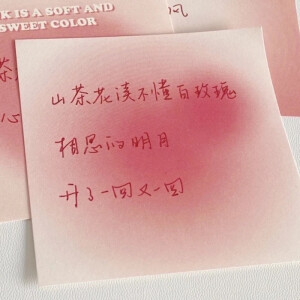 K IS A SOFT AND
SWEET COLOR
风
茶
心
山茶花读不懂白玫瑰
相思的明月
升了一回又一回